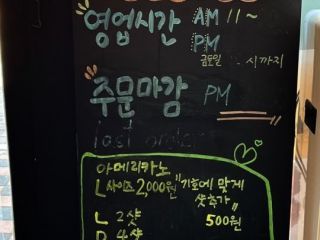 "영업시간" AM 11~
PM
금토일 시까지
"주문마감 PM
last order
아메리카노
L 사이즈 2,000원
"기호에 맞게
샷추가"
500원
L 2샷